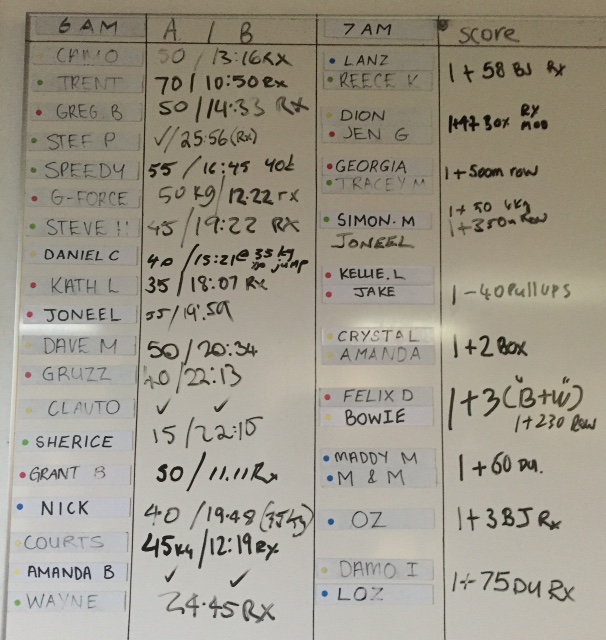 6 AM A / B
CAMO 50 / 13:16 RX
TRENT 70 / 10:50 Rx
GREG. B 50 / 14:33 RX
STEF P ✓ / 25:56 (Rx)
SPEEDY 55 / 16:45
G-FORCE 50 kg / 12.22 rx
STEVE H 45 / 19:22 RX
DANIEL C 40 / 15:21 @ 35 kg
no jump
KATH L 35 / 18:07 Rx
JONEEL 35 / 19:59
DAVE M 50 / 20:34
GRUZZ 40 / 22:13
CLAUTO ✓ ✓
SHERICE 15 / 22:15
GRANT B 50 / 11.11 Rx
NICK 40 / 19.48 (35kg)
COURTS 45kg / 12:19 Rx
AMANDA B ✓ ✓
WAYNE 24.45 RX
7 AM SCORE
LANZ
REECE K
1 + 58 BJ Rx
DION
JEN G
BOX RX
MOD
GEORGIA
TRACEY M
1 + 500m row
SIMON. M
JONEEL
1 + 50
1 + 350m Row
KELLIE. L
JAKE
1 - 40 PULLUPS
CRYSTAL
AMANDA
1 + 2 BOX
FELIX D
BOWIE
1 + 3 ("B+W")
1 + 230 Row
MADDY M
M & M
1 + 60 DU.
OZ
1 + 3 BJ Rx
DAMO I
LOZ
1 + 75 DU RX